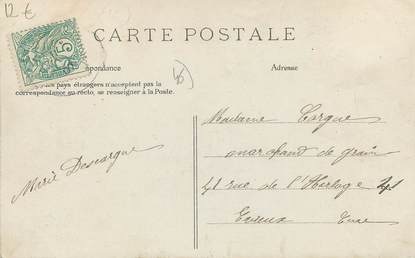 12 €
CARTE POSTALE
5
pondance
Adresse
pays étrangers n'acceptent pas la
correspondance au recto, se renseigner à la Poste.
Madame Corgue
marchand de grain
41 rue de l'Horloge 41
Evreux Eure
Marie Descargue